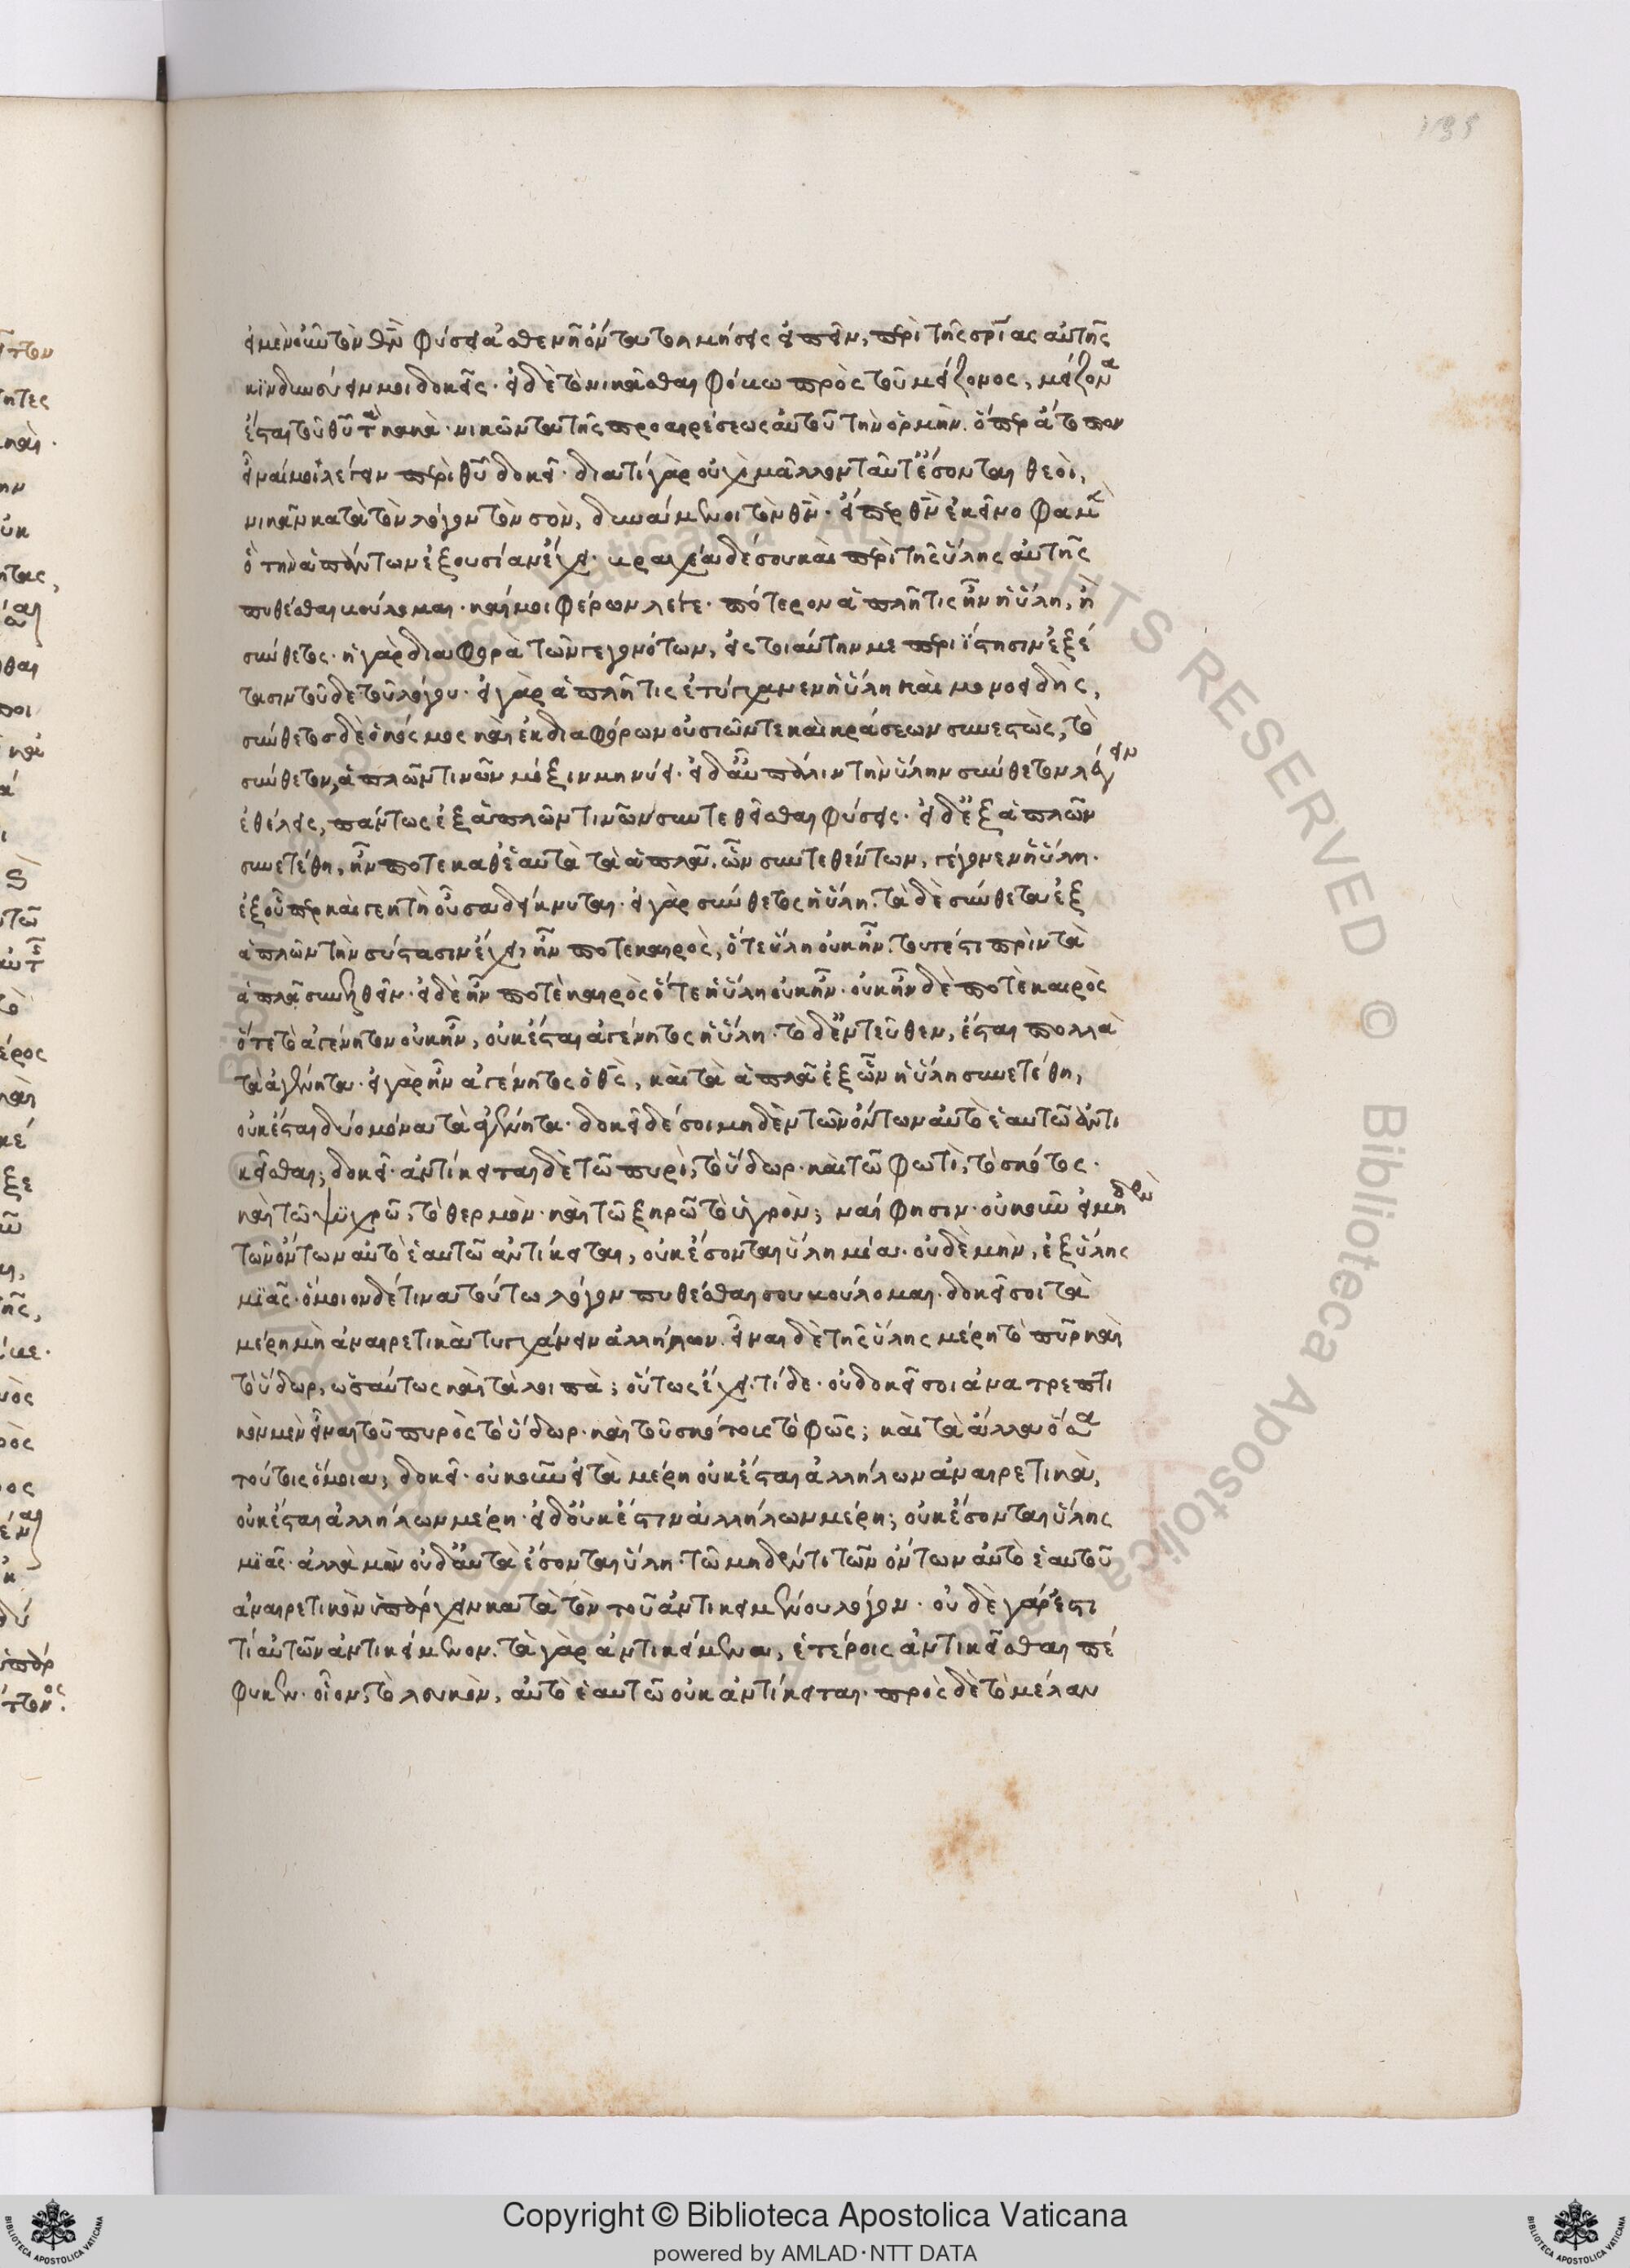 εἰ μὲν οὖν τὸν θν̅ φύσει ἀσθενῆ ὄντα τολμήσεις εἰπεῖν, περὶ τῆς σρίας αὐτῆς
κινδυνεύειν μοι δοκεῖς. εἰ δὲ τῶ νικᾶσθαι φόβω πρὸς τοῦ μείζονος, μείζονα
ἔσται τοῦ θυ̅ τὰ κακὰ νικῶντα τῆς προαιρέσεως αὐτοῦ τὴν ὁρμήν. ὅπερ ἄτοπον
εἶναί μοι λέγειν περὶ θυ̅ δοκεῖ. διατί γὰρ οὐχὶ μᾶλλον ταῦτ' ἔσονται θεοὶ,
νικᾶν κατὰ τὸν λόγον τὸν σὸν, δυνάμενοι τὸν θν̅. εἴπερ θν̅ ἐκεῖνο φαμὲν
ὃ τὴν ἁπάντων ἐξουσίαν ἔχει. βραχέα δέ σου καὶ περὶ τῆς ὕλης αὐτῆς
πυθέσθαι βούλομαι. καί μοι φέρων λέγε. πότερον ἁπλῆ τις ἦν ἡ ὕλη, ἢ
σύνθετος. ἡ γὰρ διαφορὰ τῶν γεγονότων, εἰς τοιαύτην με περιίστησιν ἐξέ
τασιν τοῦδε τοῦ λόγου. εἰ γὰρ ἁπλῆ τις ἐτύγχανεν ἡ ὕλη καὶ μονοειδὴς,
σύνθετος δὲ ὁ κόσμος καὶ ἐκ διαφόρων οὐσιῶν τε καὶ κράσεων συνεστὼς, τὸ
σύνθετον, ἁπλῶν τινῶν μίξιν μηνύει. εἰ δ' αὖ πάλιν τὴν ὕλην σύνθετον λέγειν
ἐθέλεις, πάντως ἐξ ἁπλῶν τινῶν συντεθεῖσθαι φύσεις. εἰ δ' ἐξ ἁπλῶν
συνετέθη, ἦν ποτε καθ' ἑαυτὰ τὰ ἁπλᾶ. ὧν συντεθέντων, γέγονεν ἡ ὕλη.
ἐξ οὗπερ καὶ γενητὴ οὖσα δείκνυται. εἰ γὰρ σύνθετος ἡ ὕλη. τὰ δὲ σύνθετα ἐξ
ἁπλῶν τὴν σύστασιν ἔχει, ἦν ποτε καιρὸς, ὅτε ὕλη οὐκ ἦν. τουτέστι πρὶν τὰ
ἁπλᾶ συνελθεῖν. εἰ δὲ ἦν ποτὲ καιρὸς ὅτε ἡ ὕλη οὐκ ἦν. οὐκ ἦν δὲ ποτὲ καιρὸς
ὅτε τὸ ἀγένητον οὐκ ἦν, οὐκ ἔσται ἀγένητος ἡ ὕλη. τὸ δ' ἐντεῦθεν, ἔσται πολλὰ
τὰ ἀγένητα. εἰ γὰρ ἦν ἀγένητος ὁ θς̅, καὶ τὰ ἁπλᾶ ἐξ ὧν ἡ ὕλη συνετέθη,
οὐκ ἔσται δύο μόνα τὰ ἀγένητα. δοκεῖ δέ σοι μηδὲν τῶν ὄντων αὐτὸ ἑαυτῶ ἀντι
κεῖσθαι; δοκεῖ. ἀντίκειται δὲ τῶ πυρὶ, τὸ ὕδωρ. καὶ τῶ φωτὶ, τὸ σκότος.
καὶ τῶ ψυχρῶ, τὸ θερμὸν. καὶ τῶ ξηρῶ τὸ ὑγρὸν; ναί φησιν. οὐκοῦν εἰ μηδὲν
τῶν ὄντων αὐτὸ ἑαυτῶ ἀντίκειται, οὐκ ἔσονται ὕλη μία. οὐδὲ μὴν, ἐξ ὕλης
μιᾶς. ὅμοιον δέ τινα τούτω λόγον πυθέσθαι σου βούλομαι. δοκεῖ σοι τὰ
μέρη μὴ ἀναιρετικὰ τυγχάνειν ἀλλήλων. εἶναι δὲ τῆς ὕλης μέρη τὸ πῦρ καὶ
τὸ ὕδωρ, ὡσαύτως καὶ τὰ λοιπὰ; οὕτως ἔχει. τί δε. οὐ δοκεῖ σοι ἀνατρεπτι
κὸν μὲν εἶναι τοῦ πυρὸς τὸ ὕδωρ. καὶ τοῦ σκότους τὸ φῶς; καὶ τὰ ἄλλα ὅσα
τούτοις ὅμοια; δοκεῖ. οὐκοῦν εἰ τὰ μέρη οὐκ ἔσται ἀλλήλων ἀναιρετικὰ,
οὐκ ἔσται ἀλλήλων μέρη. εἰ δ' οὐκ ἔστιν ἀλλήλων μέρη; οὐκ ἔσονται ὕλης
μιᾶς. ἀλλὰ μὴν οὐδ' αὐτὰ ἔσονται ὕλη. τῶ μηδέν τι τῶν ὄντων αὐτὸ ἑαυτοῦ
ἀναιρετικὸν ὑπάρχειν κατὰ τὸν τοῦ ἀντικειμένου λόγον. οὐδὲ γάρ ἐστι
τί αὐτῶν ἀντικείμενον. τὰ γὰρ ἀντικείμενα, ἑτέροις ἀντικεῖσθαι πέ
φυκεν. οἷον, τὸ λευκὸν, αὐτὸ ἑαυτῶ οὐκ ἀντίκειται. πρὸς δὲ τὸ μέλαν
Copyright © Biblioteca Apostolica Vaticana
powered by AMLAD·NTT DATA